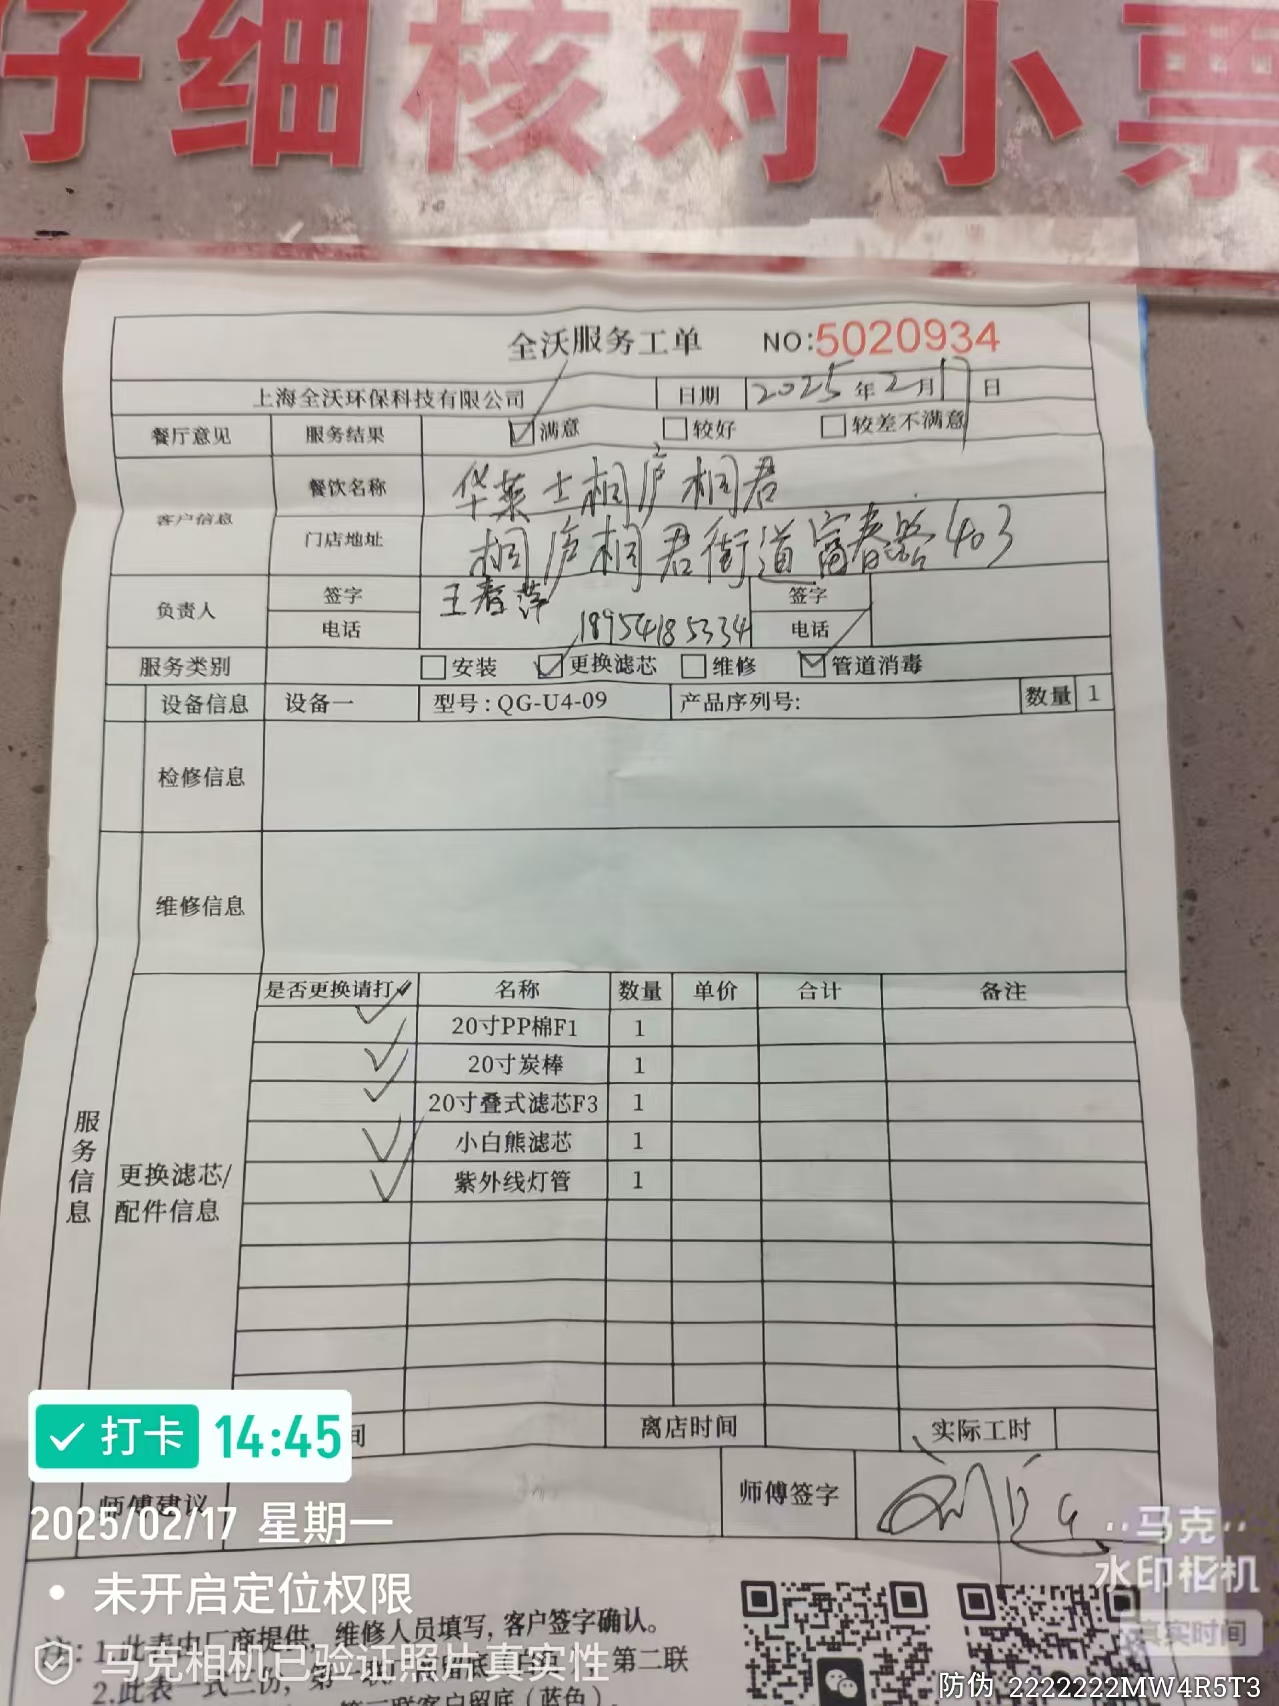 仔细核对小票
全沃服务工单 NO:5020934
上海全沃环保科技有限公司 日期 2025年2月17日
餐厅意见 服务结果 满意 较好 较差不满意
客户信息 餐饮名称 华莱士桐庐桐君
门店地址 桐庐桐君街道富春路403
负责人 签字 王春萍 签字
电话 18954185334 电话
服务类别 安装 更换滤芯 维修 管道消毒
设备信息 设备一 型号:QG-U4-09 产品序列号: 数量 1
检修信息
维修信息
服务信息
更换滤芯/
配件信息
是否更换请打✓ 名称 数量 单价 合计 备注
✓ 20寸PP棉F1 1
✓ 20寸炭棒 1
✓ 20寸叠式滤芯F3 1
✓ 小白熊滤芯 1
✓ 紫外线灯管 1
间 离店时间 实际工时
师傅建议 师傅签字
打卡 14:45
2025/02/17 星期一
未开启定位权限
马克相机已验证照片真实性
注:1.此表由厂商提供,维修人员填写,客户签字确认。
2.此表一式三份,第一联 第二联
第三联客户留底(蓝色)。
马克
水印相机
真实时间
防伪 2222222MW4R5T3